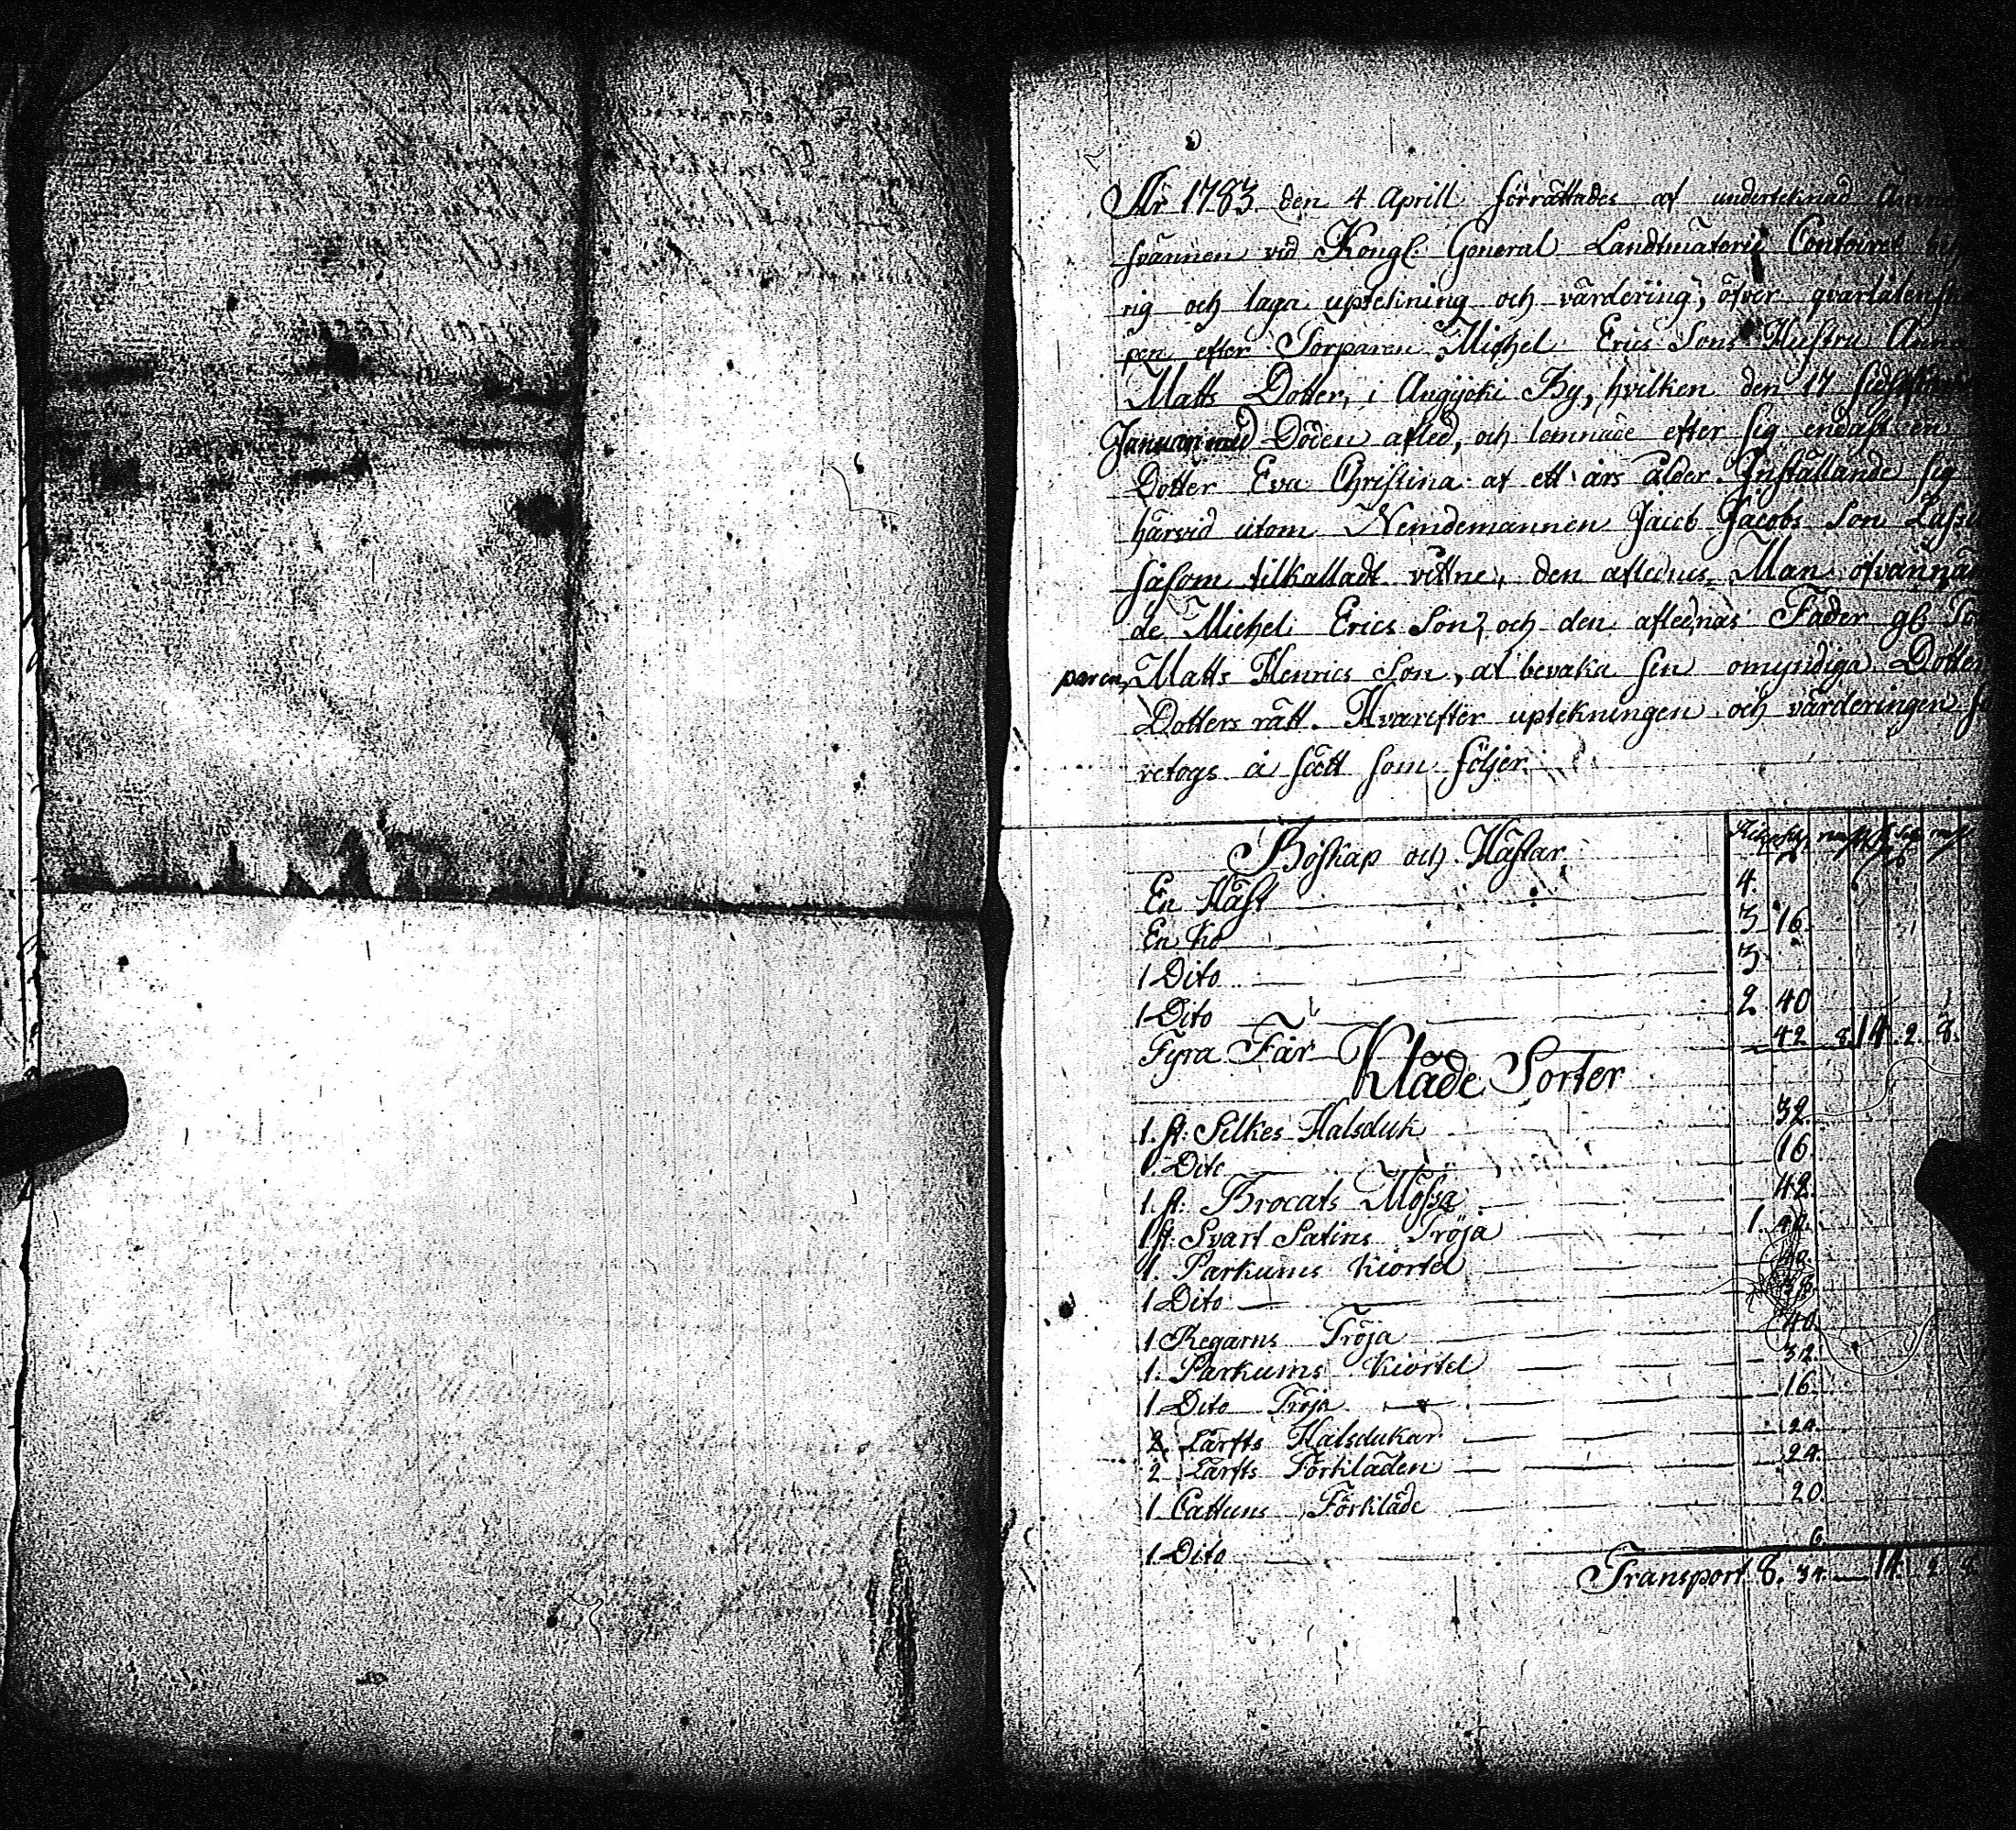 År 1783 den 4 Aprill förrättades af undertecknad
svännen vid Kongl: General Landtmäterie Contoiret
rig och laga uptekning och värdering, öfver qvarlåtenska
pen efter Torparen Michel Erics Sons Hustru Anna
Matts Dotter, i Angijoki By, hvilken den 17 sidstl
Januari med Döden afled, och lemnade efter sig endast en
Dotter Eva Christina af ett års ålder. Inställande sig
härvid utom Nemdemannen Jacob Jacobs Son Lassi
såsom tilkalladt vittne, den aflednes Man ofvannäm
de Michel Erics Son, och den aflednas Fader gl Tor
paren, Matts Henrics Son, at bevaka sin omyndiga Dotter
Dotters rätt. Hvarefter uptekningen och värderingen fö
retogs å sätt som följer
Boskap och Hästar
En Häst 4.
En Ko 3 16.
1 Dito 3
1 Dito 2 40
Fyra Får 42 8. 14. 2. 8.
Kläde Sorter
1. st: Silkes Halsduk 32.
1. Dito 16.
1. st: Brocats Mössa 42.
1 st: Svart Satins Tröja 1.
1. Parkums Kiortel
1 Dito
1 Regarns Tröja 40
1. Parkums Kiortel 32.
1 Dito Tröja 16.
2. Lärfts Halsdukar 24.
2 Lärfts Förkläden 24.
1 Cattuns Förkläde 20.
1 Dito 6
Transport 8. 34. 14. 2. 8